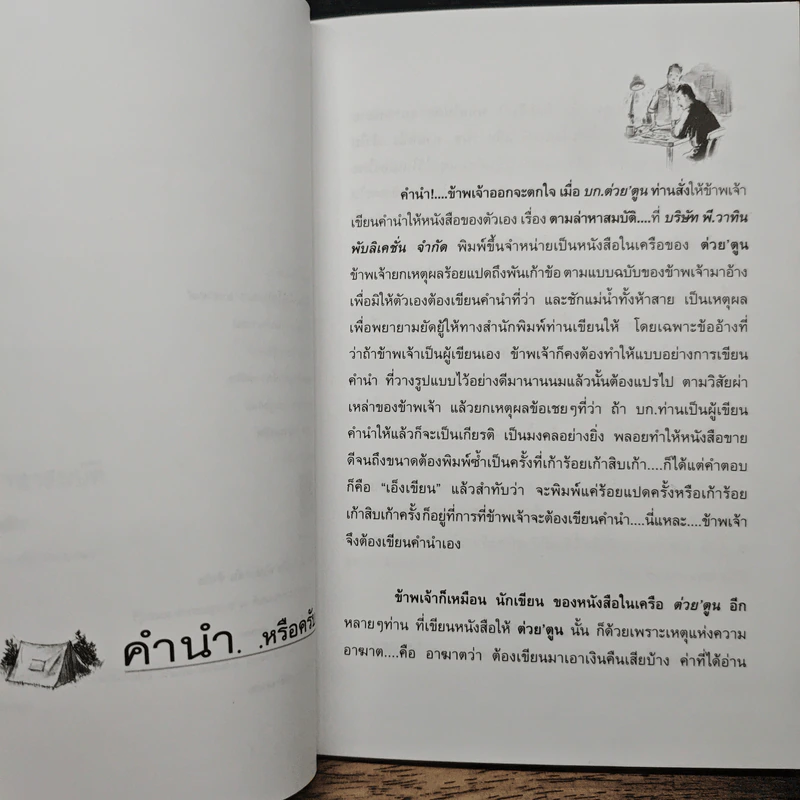 คำนำ. . .หรือครับ
คำนำ!....ข้าพเจ้าออกจะตกใจ เมื่อ บก.ต่วย'ตูน ท่านสั่งให้ข้าพเจ้า
เขียนคำนำให้หนังสือของตัวเอง เรื่อง ตามล่าหาสมบัติ....ที่ บริษัท พี.วาทิน
พับลิเคชั่น จำกัด พิมพ์ขึ้นจำหน่ายเป็นหนังสือในเครือของ ต่วย'ตูน
ข้าพเจ้ายกเหตุผลร้อยแปดถึงพันเก้าข้อ ตามแบบฉบับของข้าพเจ้ามาอ้าง
เพื่อมิให้ตัวเองต้องเขียนคำนำที่ว่า และชักแม่น้ำทั้งห้าสาย เป็นเหตุผล
เพื่อพยายามยัดยู้ให้ทางสำนักพิมพ์ท่านเขียนให้ โดยเฉพาะข้ออ้างที่
ว่าถ้าข้าพเจ้าเป็นผู้เขียนเอง ข้าพเจ้าก็คงต้องทำให้แบบอย่างการเขียน
คำนำ ที่วางรูปแบบไว้อย่างดีมานานนมแล้วนั้นต้องแปรไป ตามวิสัยผ่า
เหล่าของข้าพเจ้า แล้วยกเหตุผลข้อเชยๆที่ว่า ถ้า บก.ท่านเป็นผู้เขียน
คำนำให้แล้วก็จะเป็นเกียรติ เป็นมงคลอย่างยิ่ง พลอยทำให้หนังสือขาย
ดีจนถึงขนาดต้องพิมพ์ซ้ำเป็นครั้งที่เก้าร้อยเก้าสิบเก้า....ก็ได้แต่คำตอบ
ก็คือ “เอ็งเขียน” แล้วสำทับว่า จะพิมพ์แค่ร้อยแปดครั้งหรือเก้าร้อย
เก้าสิบเก้าครั้งก็อยู่ที่การที่ข้าพเจ้าจะต้องเขียนคำนำ....นี่แหละ....ข้าพเจ้า
จึงต้องเขียนคำนำเอง
ข้าพเจ้าก็เหมือน นักเขียน ของหนังสือในเครือ ต่วย'ตูน อีก
หลายๆท่าน ที่เขียนหนังสือให้ ต่วย'ตูน นั้น ก็ด้วยเพราะเหตุแห่งความ
อาฆาต....คือ อาฆาตว่า ต้องเขียนมาเอาเงินคืนเสียบ้าง ค่าที่ได้อ่าน